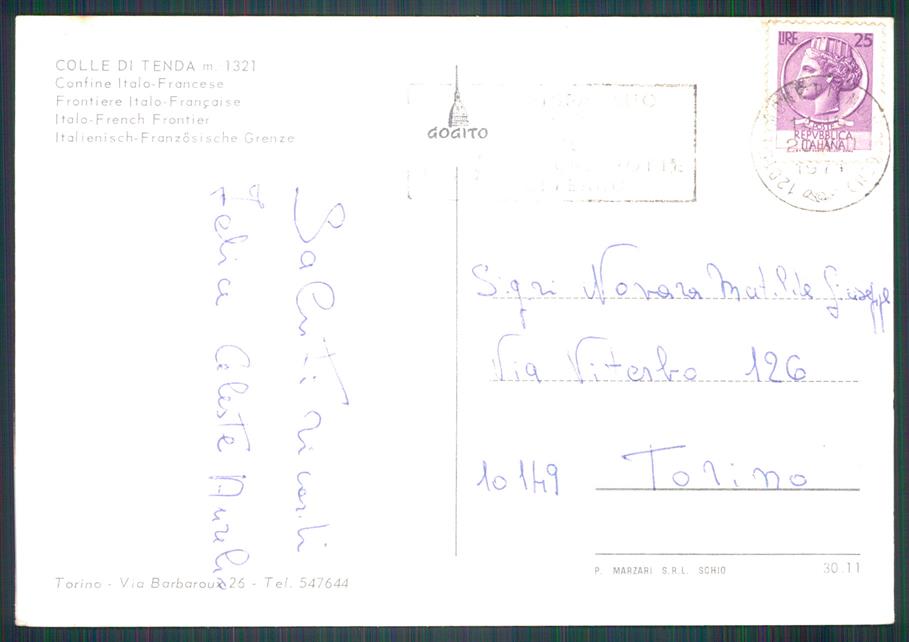 COLLE DI TENDA m. 1321
Confine Italo-Francese
Frontiere Italo-Française
Italo-French Frontier
Italienisch-Französische Grenze
GOGITO
LIRE 25
POSTE
REPVBBLICA
ITALIANA
1971
Saluti ricordi
Felia Celeste Aurelio
Sigri Novara Matilde Giuseppe
Via Viterbo 126
10149 Torino
Torino - Via Barbaroux 26 - Tel. 547644
P. MARZARI S.R.L. SCHIO
30.11